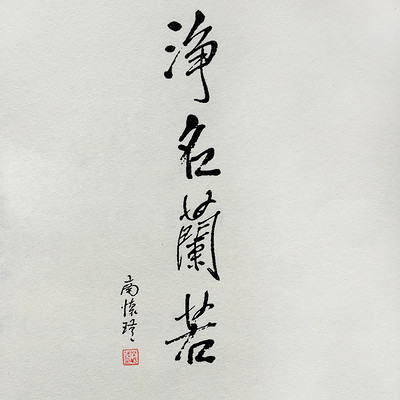 淨名蘭若
南懷瑾